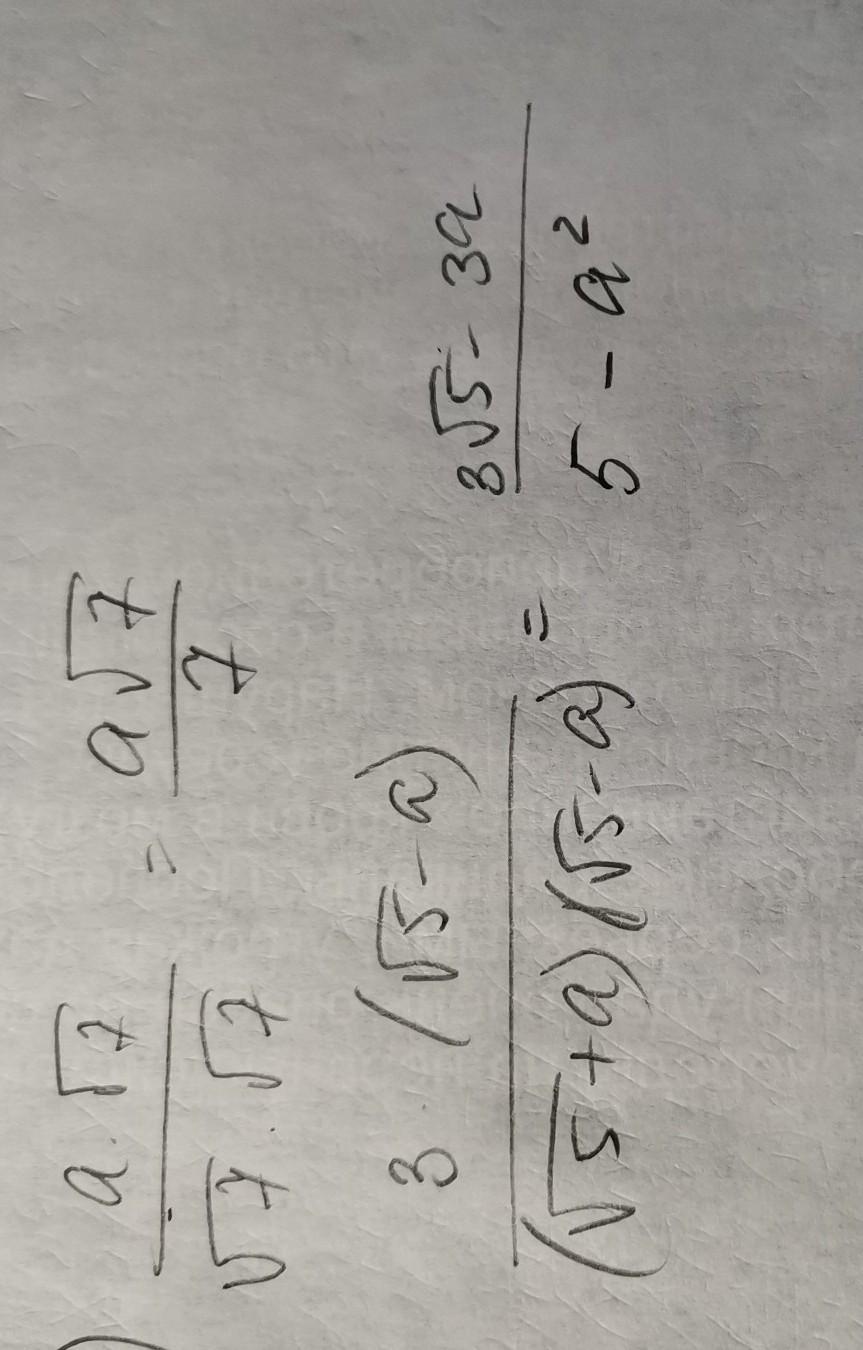 a · √7 / √7 · √7 = a√7 / 7
3 · (√5 - a) / (√5 + a)(√5 - a) = 3√5 - 3a / 5 - a²